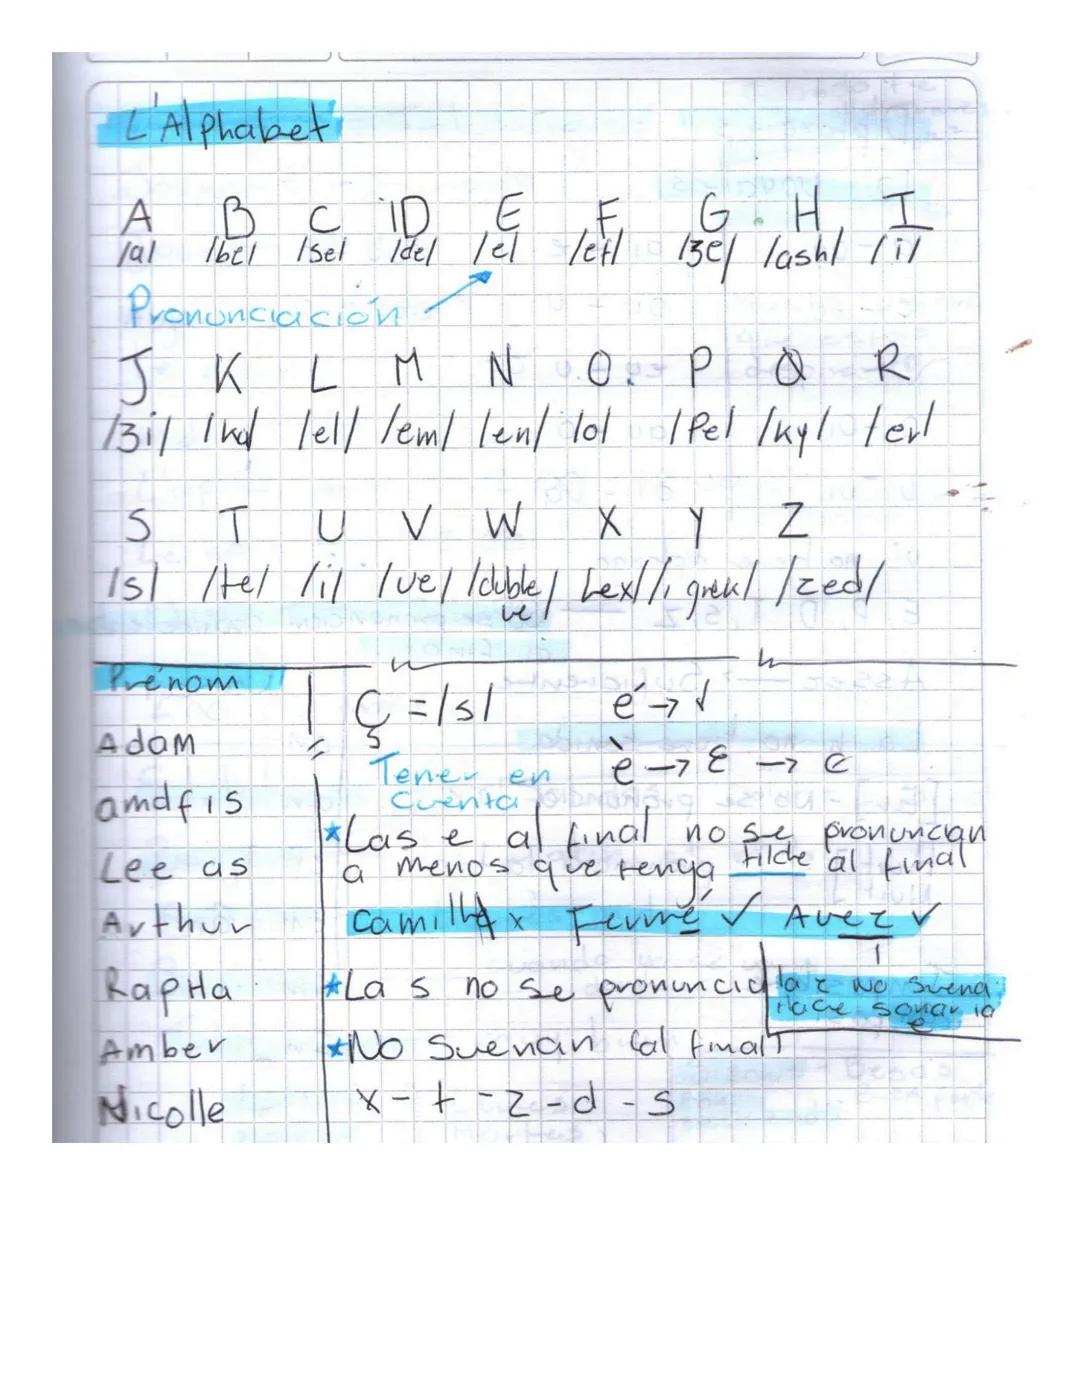 L'Alphabet
A B C D E F G H I
/a/ /be/ /se/ /de/ /e/ /ef/ /ʒe/ /ash/ /i/
Pronunciación
J K L M N O P Q R
/ʒi/ /ka/ /el/ /em/ /en/ /o/ /Pe/ /ky/ /er/
S T U V W X Y Z
/s/ /te/ /i/ /ve/ /duble ve/ /ex/ /i grek/ /zed/
Prénom
Ç = /s/ é →
Adam
Tener en cuenta è → ɛ → e
amdfis
*Las e al final no se pronuncian
Lee as
a menos que tenga tilde al final
Arthur
Camille x Fermé ✓ Avez ✓
Rapha
*La s no se pronuncia
la z no suena
hace sonar la e
Amber
*No suenan (al final)
Nicolle
x - t - z - d - s